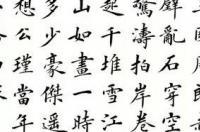 壁亂石穿空
驚濤拍岸卷
起千堆雪江
山如畫一時
多少豪傑遙
想公瑾當年